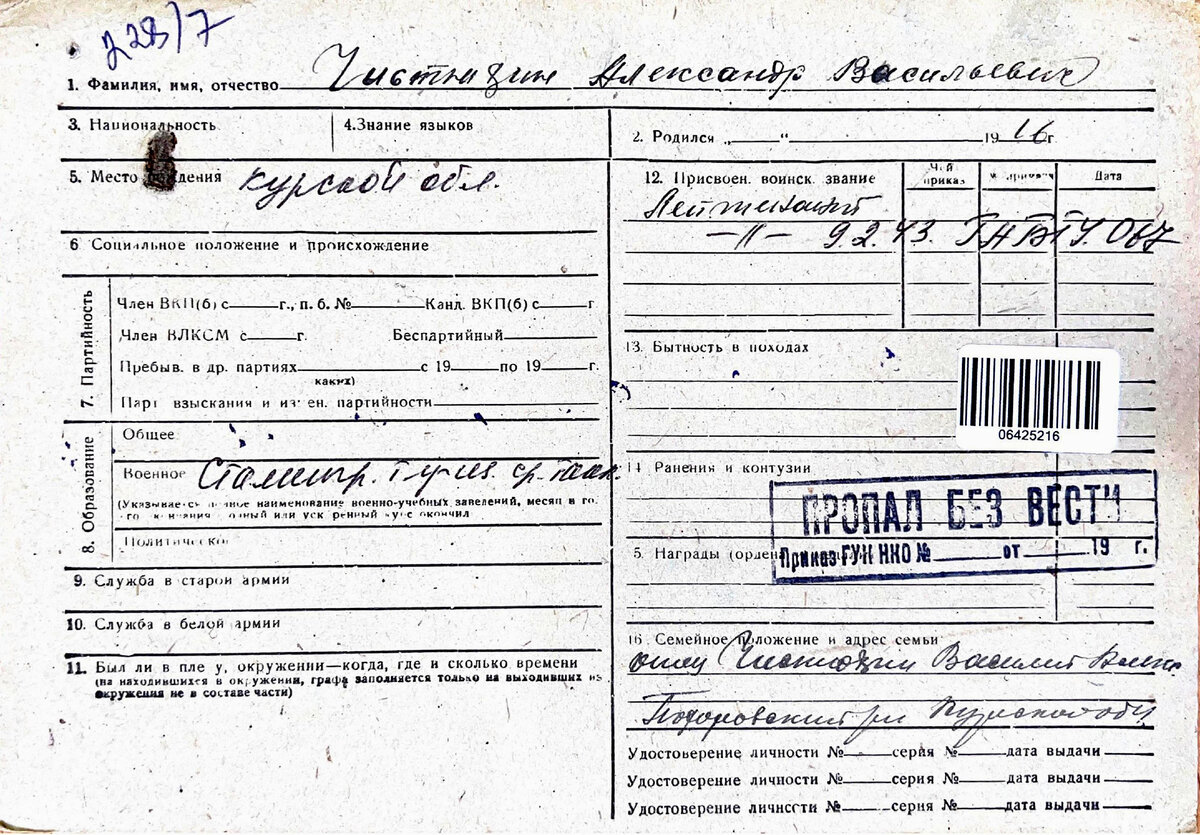 228/7
1. Фамилия, имя, отчество Александр Васильевич
3. Национальность 4.Знание языков
5. Место рождения Курской обл.
6 Социальное положение и происхождение
7. Партийность
Член ВКП(б) с г., п. б. № Канд. ВКП(б) с г.
Член ВЛКСМ с г. Беспартийный
Пребыв. в др. партиях с 19 по 19 г.
каких)
Парт взыскания и измен. партийности
8. Образование
Общее
Военное Сталингр. ср. танк.
(Указывается полное наименование военно-учебных заведений, месяц и год
Политическое
9. Служба в старой армии
10. Служба в белой армии
11. Был ли в плену, окружении—когда, где и сколько времени
(на находившихся в окружении, графа заполняется только на выходивших из
окружения не в составе части)
2. Родился „ “ 1916г
12. Присвоен. воинск. звание Чей приказ № приказа Дата
Лейтенант
—〃— 9.2.43. 067
13. Бытность в походах
06425216
14 Ранения и контузии
ПРОПАЛ БЕЗ ВЕСТИ
Приказ ГУК НКО № от 19 г.
5. Награды (орден
16 Семейное положение и адрес семьи
отец Василий
Курской обл.
Удостоверение личности № серия № дата выдачи
Удостоверение личности № серия № дата выдачи
Удостоверение личности № серия № дата выдачи